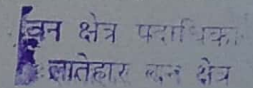 वन क्षेत्र पदाधिका
लातेहार वन क्षेत्र